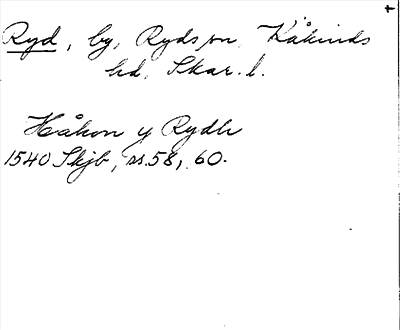 Ryd, by, Ryds sn, Kåkinds
hd, Skar. l.
Håkon y Rydh
1540 Skjb, ss. 58, 60.